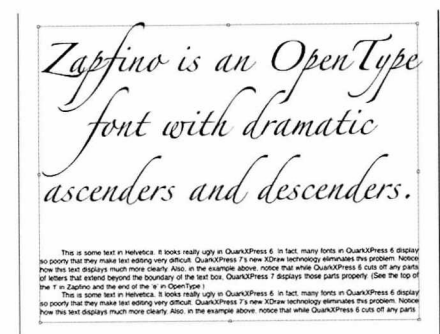 Zapfino is an OpenType
font with dramatic
ascenders and descenders.
This is some text in Helvetica. It looks really ugly in QuarkXPress 6. In fact, many fonts in QuarkXPress 6 display
so poorly that they make text editing very difficult. QuarkXPress 7's new XDraw technology eliminates this problem. Notice
how this text displays much more clearly. Also, in the example above, notice that while QuarkXPress 6 cuts off any parts
of letters that extend beyond the boundary of the text box, QuarkXPress 7 displays those parts properly. (See the top of
the 'f' in Zapfino and the end of the 'e' in OpenType.)
This is some text in Helvetica. It looks really ugly in QuarkXPress 6. In fact, many fonts in QuarkXPress 6 display
so poorly that they make text editing very difficult. QuarkXPress 7's new XDraw technology eliminates this problem. Notice
how this text displays much more clearly. Also, in the example above, notice that while QuarkXPress 6 cuts off any parts